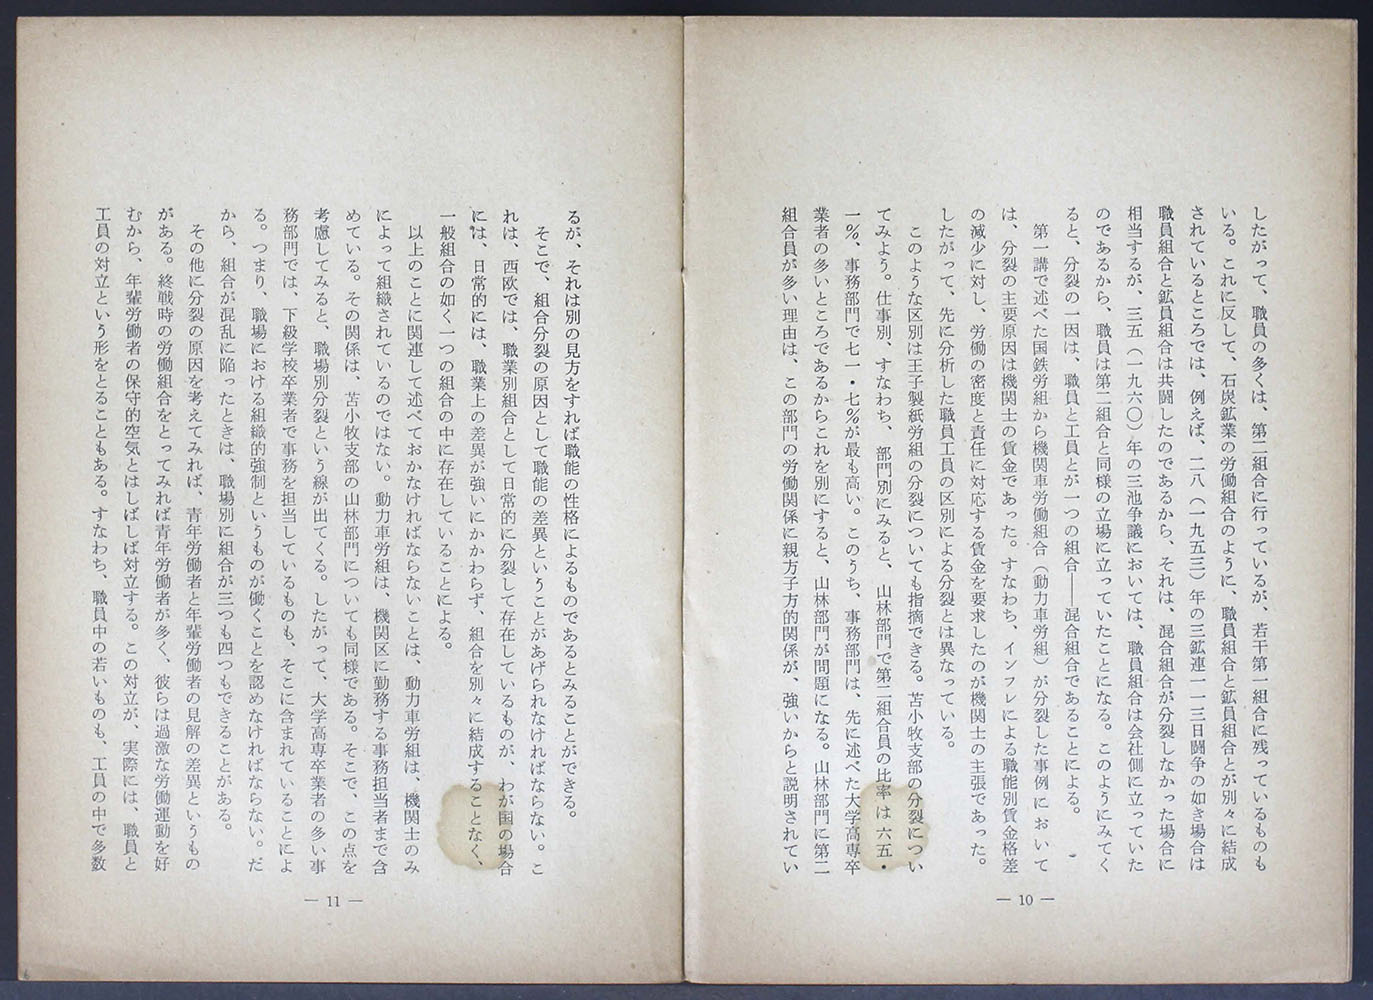 したがって、職員の多くは、第二組合に行っているが、若干第一組合に残っているものも
いる。これに反して、石炭鉱業の労働組合のように、職員組合と鉱員組合とが別々に結成
されているところでは、例えば、二八（一九五三）年の三鉱連一一三日闘争の如き場合は
職員組合と鉱員組合は共闘したのであるから、それは、混合組合が分裂しなかった場合に
相当するが、三五（一九六〇）年の三池争議においては、職員組合は会社側に立っていた
のであるから、職員は第二組合と同様の立場に立っていたことになる。このようにみてく
ると、分裂の一因は、職員と工員とが一つの組合――混合組合であることによる。
第一講で述べた国鉄労組から機関車労働組合（動力車労組）が分裂した事例において
は、分裂の主要原因は機関士の賃金であった。すなわち、インフレによる職能別賃金格差
の減少に対し、労働の密度と責任に対応する賃金を要求したのが機関士の主張であった。
したがって、先に分析した職員工員の区別による分裂とは異なっている。
このような区別は王子製紙労組の分裂についても指摘できる。苫小牧支部の分裂につい
てみよう。仕事別、すなわち、部門別にみると、山林部門で第二組合員の比率は六五・
一％、事務部門で七一・七％が最も高い。このうち、事務部門は、先に述べた大学高専卒
業者の多いところであるからこれを別にすると、山林部門が問題になる。山林部門に第二
組合員が多い理由は、この部門の労働関係に親方子方的関係が、強いからと説明されてい
— 10 —
るが、それは別の見方をすれば職能の性格によるものであるとみることができる。
そこで、組合分裂の原因として職能の差異ということがあげられなければならない。こ
れは、西欧では、職業別組合として日常的に分裂して存在しているものが、わが国の場合
には、日常的には、職業上の差異が強いにかかわらず、組合を別々に結成することなく、
一般組合の如く一つの組合の中に存在していることによる。
以上のことに関連して述べておかなければならないことは、動力車労組は、機関士のみ
によって組織されているのではない。動力車労組は、機関区に勤務する事務担当者まで含
めている。その関係は、苫小牧支部の山林部門についても同様である。そこで、この点を
考慮してみると、職場別分裂という線が出てくる。したがって、大学高専卒業者の多い事
務部門では、下級学校卒業者で事務を担当しているものも、そこに含まれていることによ
る。つまり、職場における組織的強制というものが働くことを認めなければならない。だ
から、組合が混乱に陥ったときは、職場別に組合が三つも四つもできることがある。
その他に分裂の原因を考えてみれば、青年労働者と年輩労働者の見解の差異というもの
がある。終戦時の労働組合をとってみれば青年労働者が多く、彼らは過激な労働運動を好
むから、年輩労働者の保守的空気とはしばしば対立する。この対立が、実際には、職員と
工員の対立という形をとることもある。すなわち、職員中の若いものも、工員の中で多数
— 11 —